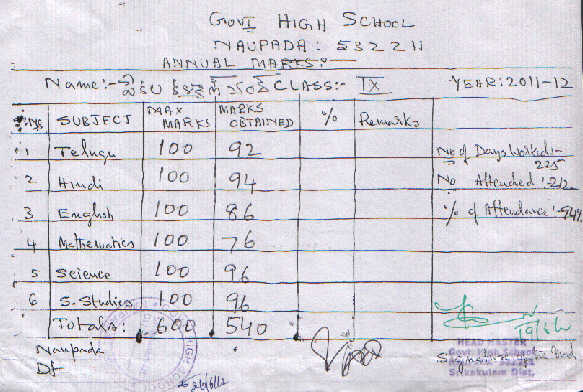 GOVT HIGH SCHOOL
NAUPADA: 532211
ANNUAL MARKS:
Name:- CLASS:- IX YEAR: 2011-12
S.No. SUBJECT MAX MARKS MARKS OBTAINED % Remarks
1 Telugu 100 92
No of Days Worked:- 225
2 Hindi 100 94
No Attended:- 212
3 English 100 86
% of Attendance:- 94%
4 Mathematics 100 76
5 Science 100 96
6 S. Studies 100 96
Totals: 600 540
Naupada
Dt
HEAD MASTER
Govt High School
Srikakulam Dist.